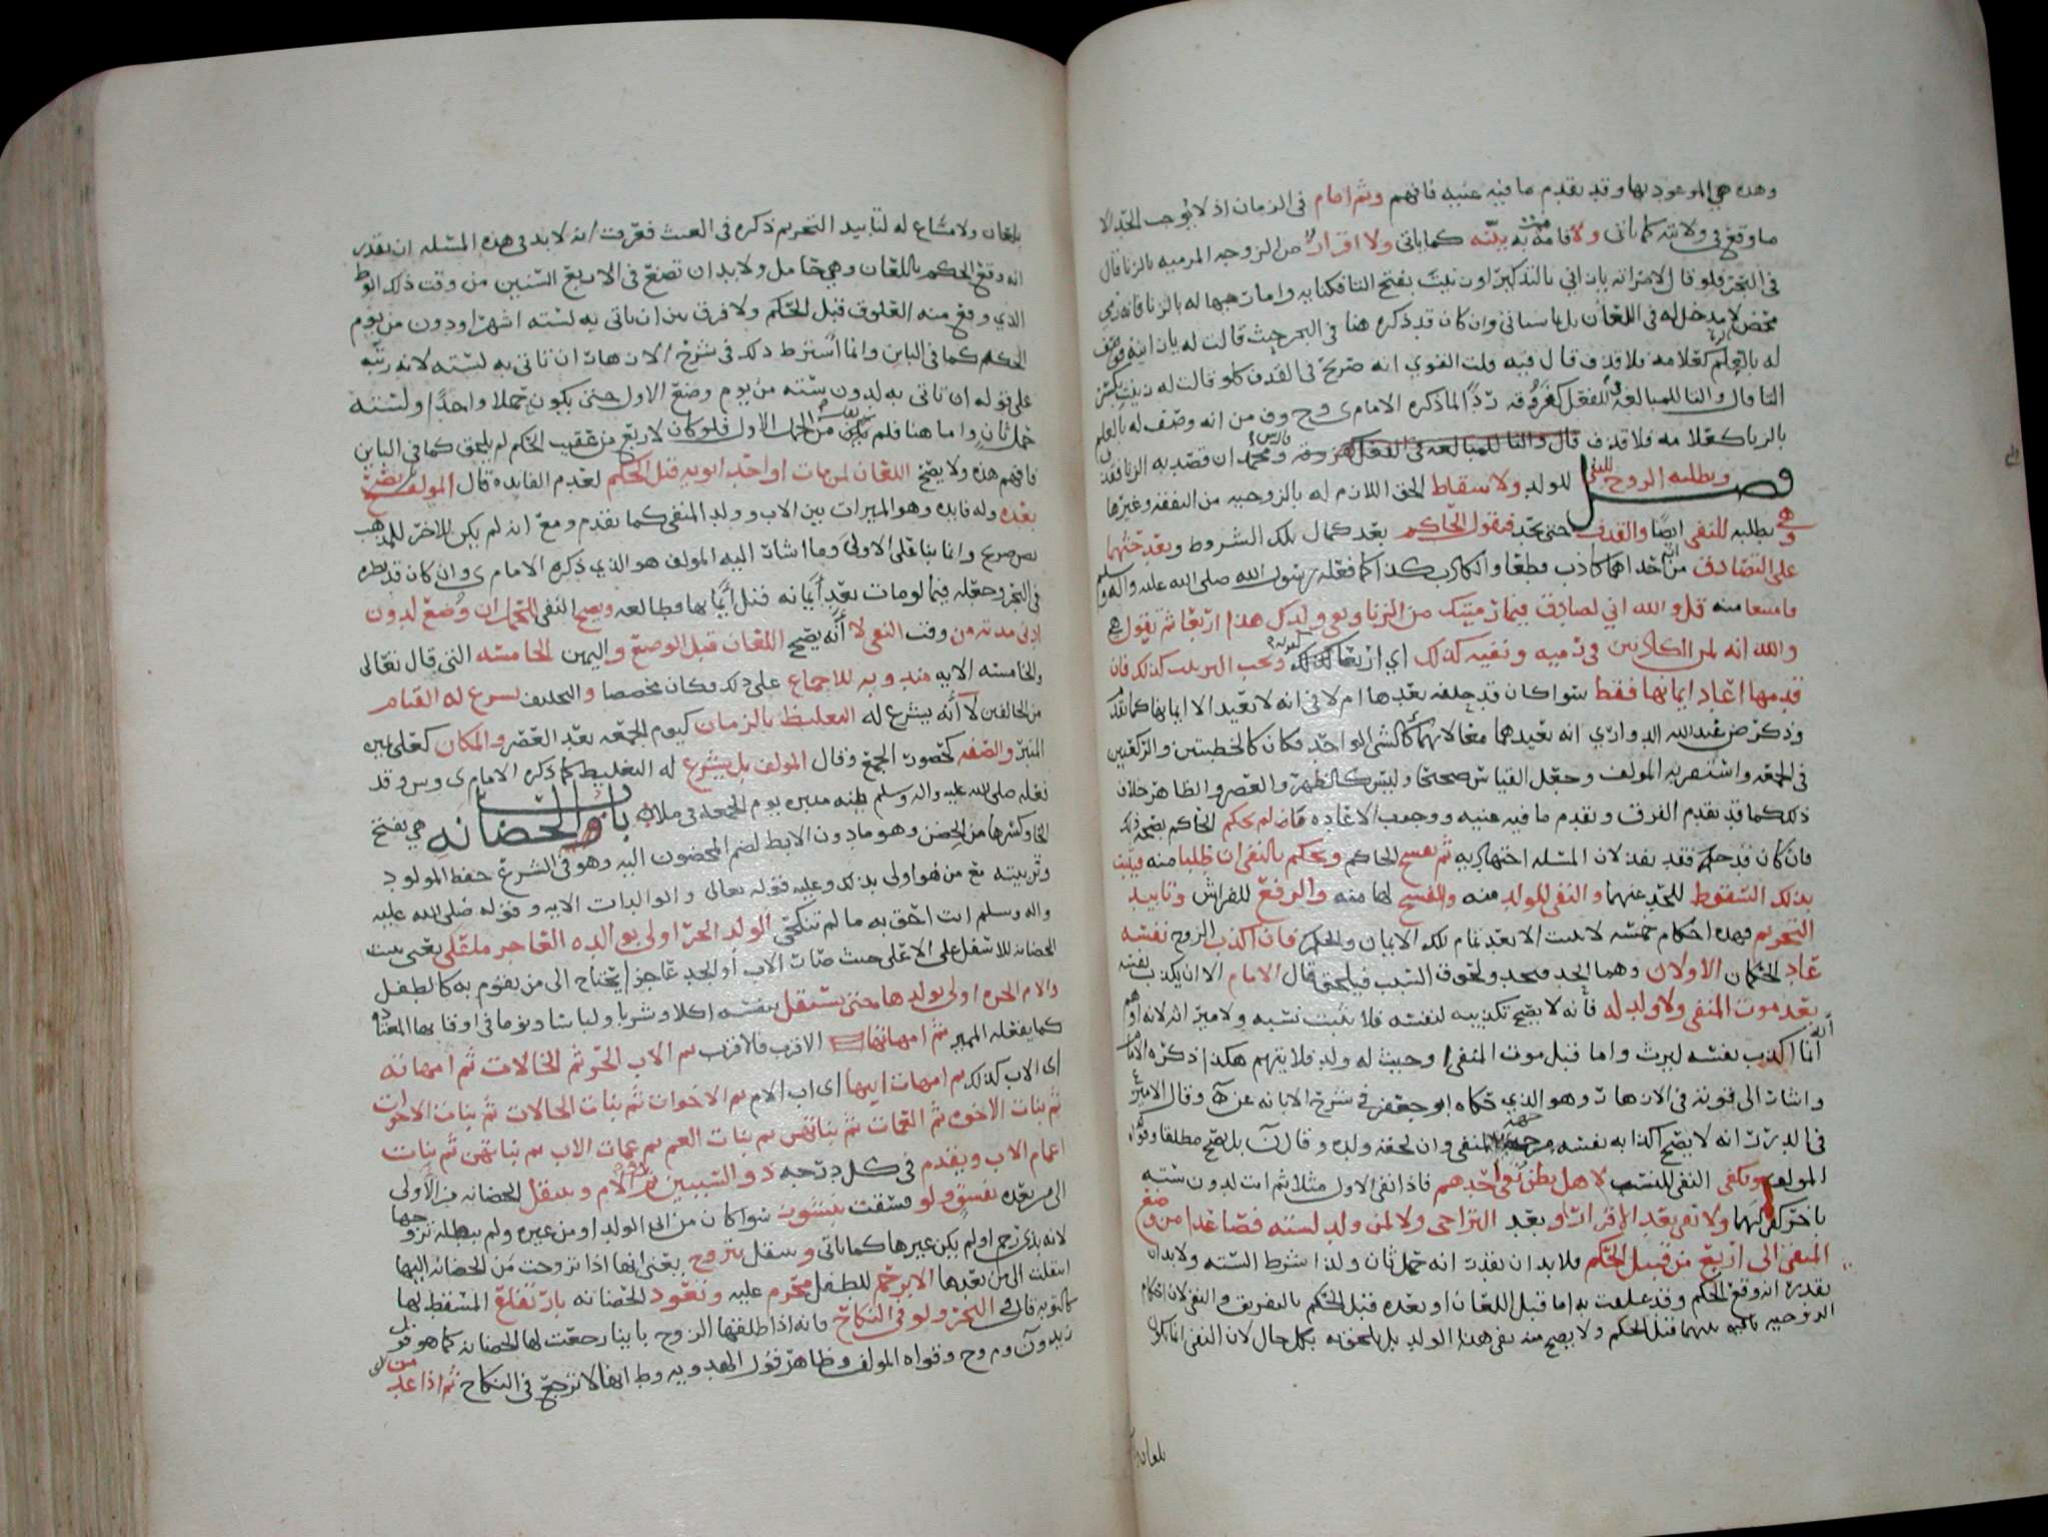 وهذه هي الموعود بها وقد تقدم ما فيه غنيه فافهم وثم امام في الزمان اذ لا يوجب الحد الا
ما وقع في ولايته كما ياتي ولا اقامة بينه كما ياتي ولا اقرار من الزوجه المرميه بالزنا قال
في البحر فلو قال لامراته يا زاني بالتذكير او زنيت بفتح التا فكنايه واما رجها له بالزنا فانه رمي
محض لا مدخل له في اللعان بل ما سياتي وان كان قد ذكره هنا في البحر حيث قالت له يا زانيه فوصف
له بالعلم كعلامه فلا قذف قال فيه قلت القوي انه صريح في القذف كلو قالت له زنيت بكسر
التا قال والتا للمبالغه في الفعل كفروقه ردا لما ذكره الامام ي وح وف من انه وصف له بالعلم
بالزنا كعلامه فلا قذف قال والتا للمبالغه في الفعل كفروقه ومحمد ان قصد به الزنا فقذف
فصل ويطلبه الزوج للنفي للولد ولاسقاط الحق اللازم له بالزوجيه من النفقه وغيرها
وهي تطلبه للنفي ايضا والقذف حتى يحد فيقول الحاكم بعد كمال تلك الشروط وبعد حثهما
على التصادق من احداهما كاذب قطعا والكاذب كذا كما فعله رسول الله صلى الله عليه واله وسلم
فامتنعا منه قل والله اني لصادق فيما رميتك من الزنا ونفي ولدك هذا اربعا ثم تقول هي
والله انه لمن الكاذبين في رميه ونفيه كذلك اي اربعا ويجب الترتيب كذلك فان
قدمها اعاد ايمانها فقط سوا كان قد حلفه بعدها ام لا في انه لا يعيد الا ايمانها كما تقدم
وذكر ض عبد الله الدواري انه يعيدهما معا لانهما كالشي الواحد فكان كالخطبتين والركعتين
في الجمعه واستقربه المولف وجعل القياس صحيحا وليس كالظهر والعصر والظاهر خلاف
ذلك كما قد تقدم الفرق وتقدم ما فيه غنيه ووجوب الاعاده فان لم يحكم الحاكم بصحة ذلك
فان كان قد حكم فقد نفذ لان المسئله اجتهاديه ثم يفسخ الحاكم ويحكم بالنفي ان طلبا منه فيثبت
بذلك السقوط للحد عنهما والنفي للولد منه والفسخ لها منه والرفع للفراش وتابيد
التحريم فهذه احكام خمسه لا تثبت الا بعد تمام تلك الايمان والحكم فان اكذب الزوج نفسه
عاد الحكمان الاولان وهما الحد فيحد ولحوق النسب فيلحق قال الامام الا ان يكذب نفسه
بعد موت المنفي ولا ولد له فانه لا يصح تكذيبه لنفسه فلا يثبت نسبه ولا ميراثه لانه اوهم
انه انما اكذب نفسه ليرث واما قبل موت المنفي او حيث له ولد فلا يتهم هكذا ذكره الامام
واشار الى قوته في الازهار وهو الذي حكاه ابو جعفر في شرح الابانه عن ه وقال الامير
في الدرر انه لا يصح اكذابه نفسه المنفي وان لحقه ولده وقال ن بل يصح مطلقا وقواه
المولف ويكفي النفي للنسب لاهل بطن نفي احدهم فاذا نفى الاول مثلا ثم اتت لدون سته
باخر كفى لهما ولا نفي بعد الاقرار او بعد التراخي ولا لمن ولد لسته فصاعدا من وضع
المنفي الى اربع من قبل الحكم فلا بد ان يقدر انه حمل ثان ولذا شرط السته ولا بد ان
يقدر انه وقع الحكم وقد علقت به اما قبل اللعان او بعده قبل الحكم بالتفريق والنفي لان احكام
الزوجيه باقيه بينهما قبل الحكم ولا يصح منه نفي هذا الولد بل يلحق به بكل حال لان النفي انما يكون
بلعان
بلعان ولا مشاع له لتابيد التحريم ذكره في الغيث فعرفت انه لا بد في هذه المسئله ان يقدر
انه وقع الحكم باللعان وهي حامل ولا بد ان تضع في الاربع السنين من وقت ذلك الوطء
الذي وقع منه العلوق قبل الحكم ولا فرق بين ان ياتي به لسته اشهر او دون من يوم
الحكم كما في الباين وانما اشترط ذلك في شرح الازهار ان تاتي به لسته لانه رتبه
على قوله ان تاتي به لدون سته من يوم وضع الاول حتى يكون حملا واحدا ولسته
حمل ثان واما هنا فلم يكن من الحمل الاول فلو كان لاربع من عقيب الحكم لم يلحق كما في الباين
فافهم هذه ولا يصح اللعان لمن مات او احد ابويه قبل الحكم لعدم الفايده قال المولف يصح
بعده وله فايده وهو الميراث بين الاب وولد المنفي كما تقدم ومع انه لم يكن للاخر للمذهب
نص صريح وانما بنا على الاولى وما اشار اليه المولف هو الذي ذكره الامام ي وان كان قد نظره
في البحر وجعله فيما لو مات بعد ايمانه قبل ايمانها فطالعه ويصح النفي للحمل ان وضع لدون
ادنى مدته من وقت النفي لا انه يصح اللعان قبل الوضع واليمين الخامسه التي قال تعالى
والخامسه الايه مندوبه للاجماع على ذلك فكان مخصصا والتحليف يسرع له القيام
من الحالفين لا انه يشرع له التغليظ بالزمان كيوم الجمعه بعد العصر والمكان كعلى عين
المنبر والصفه كحضور الجمع وقال المولف بل يشرع له التغليظ كما ذكره الامام ي وس وقد
فعله صلى الله عليه واله وسلم بينه منبره يوم الجمعه في ملا باب والحضانه هي بفتح
الحا وكسرها من الحضن وهو ما دون الابط لضم المحضون اليه وهو في الشرع حفظ المولود
وتربيته مع من هو اولى بذلك وعليه قوله تعالى والوالدات الايه وقوله صلى الله عليه
واله وسلم انت احق به ما لم تنكحي الولد الحر اولى بوالده العاجز ملتقى يعني تثبت
الحضانه للاسفل على الاعلى حيث صار الاب او الجد عاجزا يحتاج الى من يقوم به كالطفل
والام الحره اولى بولدها حتى يستقل بنفسه اكلا وشربا ولباسا ونوما في اوقاتها المعتاده
كما يفعله المميز ثم امهاتها الاقرب فالاقرب ثم الاب الحر ثم الخالات ثم امهاته
اي الاب كذلك ثم امهات ابيها اي اب الام ثم الاخوات ثم بنات الخالات ثم بنات الاخوات
ثم بنات الاخوه ثم العمات ثم بناتهن ثم بنات العم ثم عمات الاب ثم بناتهن ثم بنات
اعمام الاب ويقدم في كل درجه ذو السببين ثم ذو الام وينتقل الحضانه من الاولى
الى من بعده بفسق ولو فسقت بنشوز سوا كان من ابي الولد او من غيره ولم يبطله تزوجها
لانه بذي رحم او لم يكن غيرها كما ياتي وينتقل بتزوج يعني انها اذا تزوجت من الحضانه اليها
انتقلت الى من بعدها الا بذي رحم للطفل محرم عليه وتعود الحضانه بارتفاع المسقط لها
كالتوبه قال في البحر ولو في النكاح فانه اذا طلقها الزوج باينا رجعت لها الحضانه كما هو قول
زيد ون وم وح وقواه المولف وظاهر قول الهدويه وط انها لا ترجع في النكاح ثم اذا عدمن